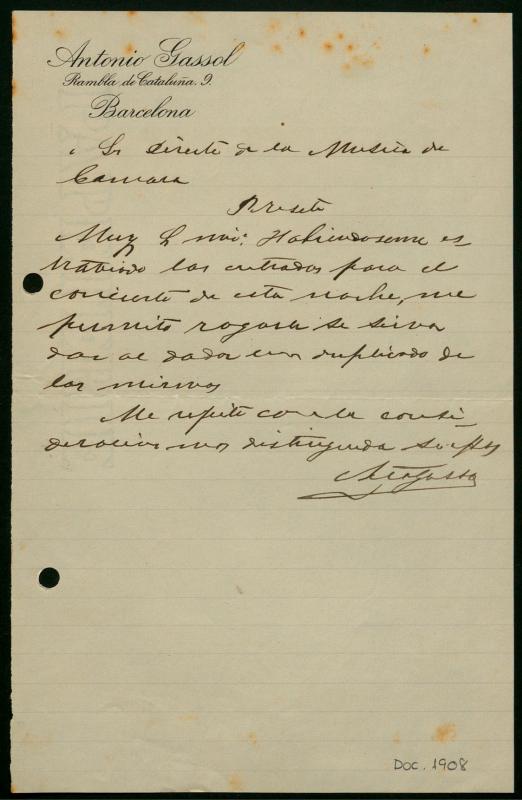 Antonio Gassol
Rambla de Cataluña, 9.
Barcelona
Sr Director de la Musica de
Camara
Presente
Muy Sr mio: Habiendoseme es
traviado las entradas para el
concierto de esta noche, me
permito rogarle se sirva
dar al dador un duplicado de
las mismas
Me repito con la consi-
deracion mas distinguida
Doc. 1908